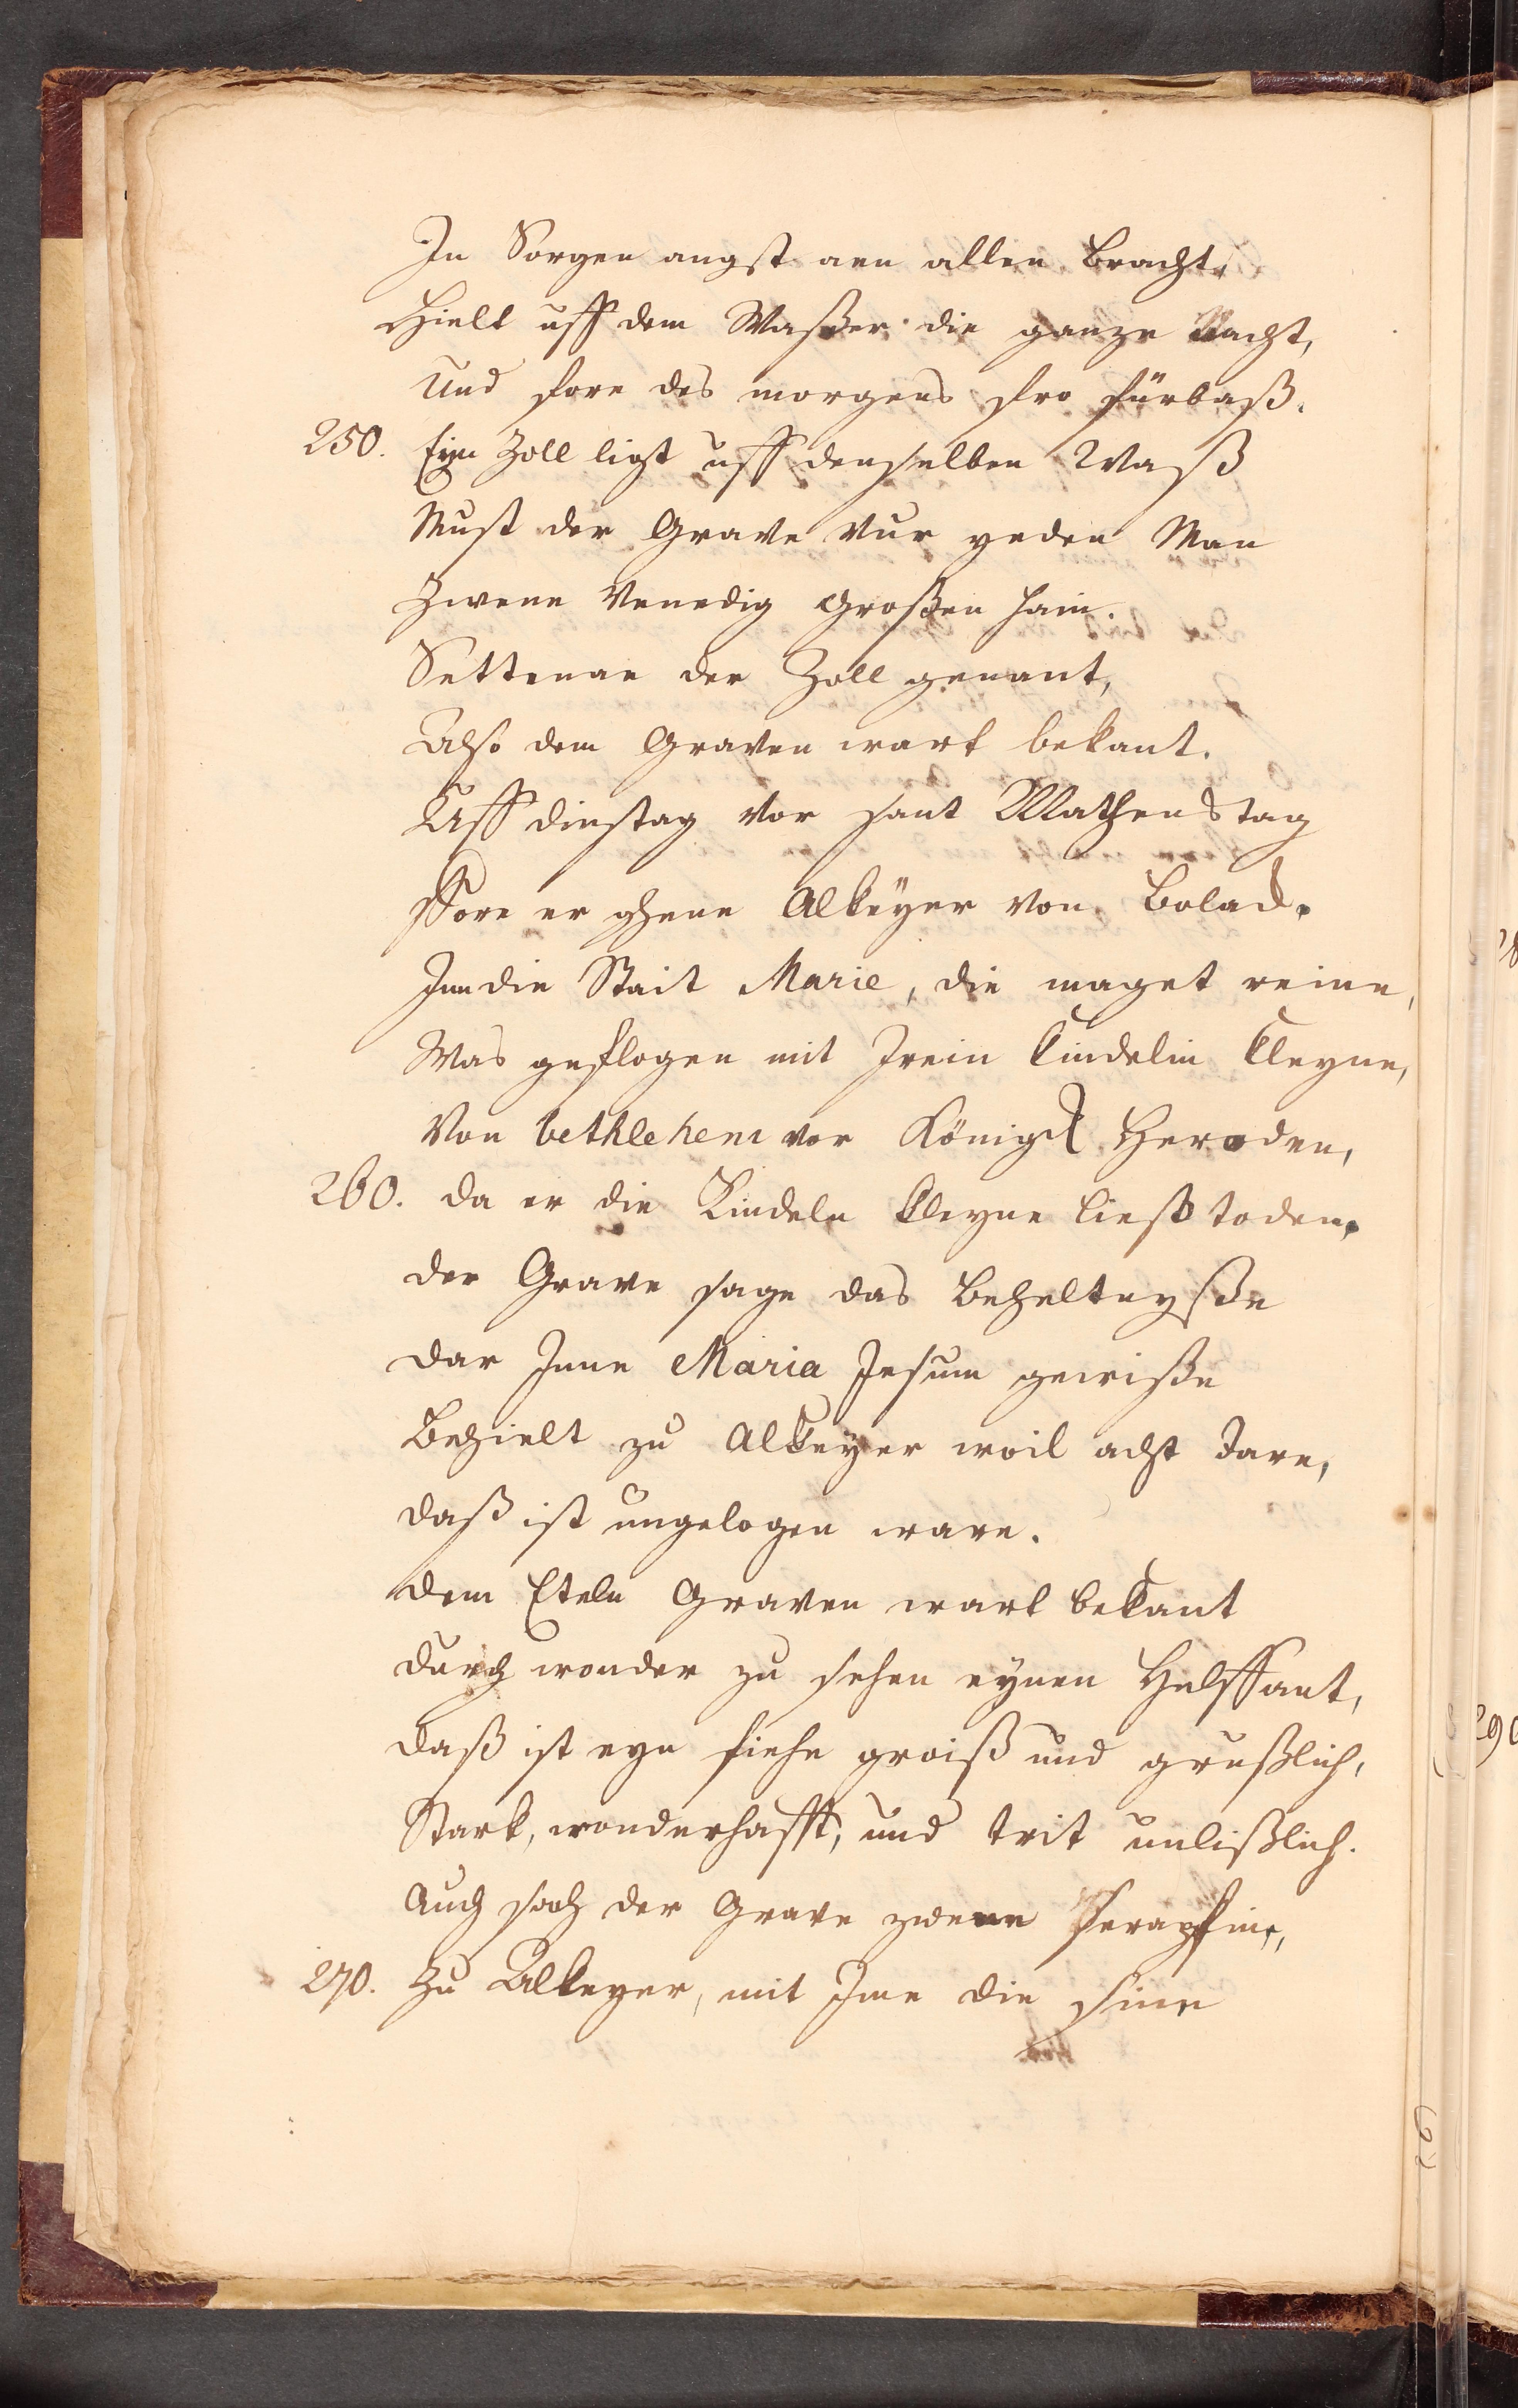 In Sorgen angst aen allen Bracht.
Hielt uff dem Waßer die ganze Nacht,
Und fore des morgens fro fürbaß.
250. Eyn Zoll ligt uff denselben Waß
Must der Grave vur yeden Man
Zwene Venedig Großen hain.
Settenae der Zoll genant,
Also dem Graven wart bekant.
Uff dinstag vor sant Mathens tag
ffore er ghene Alkeyer von Bolad.
Inn die Stait Marie, die maget reine,
Was geflogen mit Irein kindelin kleyne,
Von bethlehem vor König Heroden,
260. da er die Kindeln kleyne ließ toden.
der Grave sage das Beheltnyße
dar Inne Maria Jesum gewiße
Behielt zu Alkeyer woil acht Jare,
daß ist ungelogen ware.
dem Eteln Graven wart bekant
durch wonder zu sehen eynen Helffant,
daß ist eyn fiehe groiß und grußlich,
Stark, wonderhafft, und trit unlißlich.
Auch sach der Grave zwene Seraphine,
270. Zu Alkeyer, mit Ime die sine